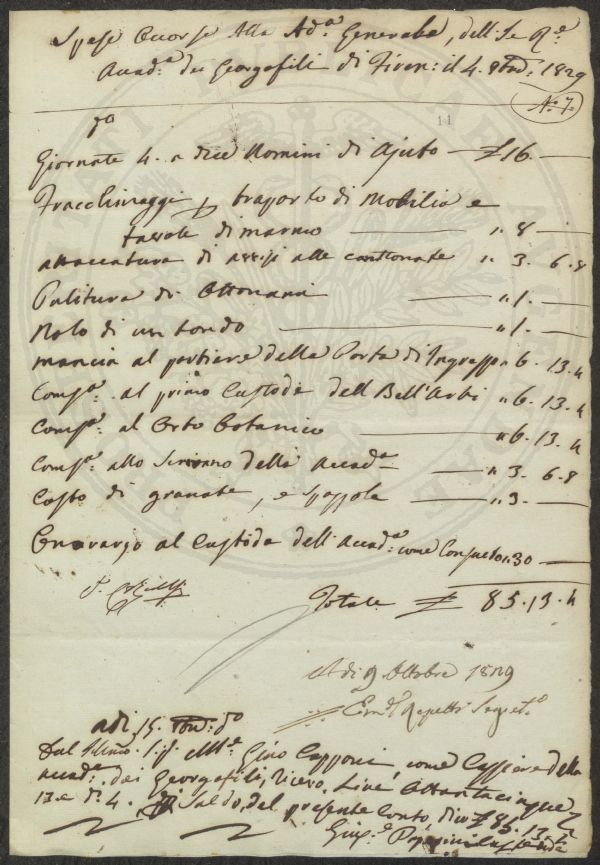 Spese Occorse Alla Ad.ª Generale, dell' I e R.e
Accad.ª dei Georgofili di Firen: il 4. 8bre 1829
N.º 7.
11
Giornate 4. a due Uomini di Ajuto — £ 16. —
Facchinaggi p traporto di Mobilia e
tavole di marmo — „ 8 —
attaccatura di avvisi alle cantonate „ 3. 6.8
Pulitura di Ottonami — „ 1. —
Nolo di un tondo — „ 1. —
mancia al portiere della Porta di Ingresso „ 6. 13.4
Comp.ª al primo Custode dell Bell' Arti „ 6. 13.4
Comp.ª al Orto Botanico — „ 6. 13.4
Comp.ª allo Scrivano della Accad.ª — „ 3. 6.8
Costo di granate, e Spazzole — „ 3. —
Onorario al Custode dell' Accad.ª come Consueto „ 30 —
Totale £ 85.13.4
A di 9 Ottobre 1829
Em.º Repetti Segret.º
adi 15. 8bre dº
Dal Illmo. Sig. M.e Gino Capponi come Cassiere della
Accad.ª dei Georgofili, Ricevo, Lire Ottantacinque
13. e d. 4. Saldo, del presente Conto, dico £ 85. 13. 4.
Giup.e